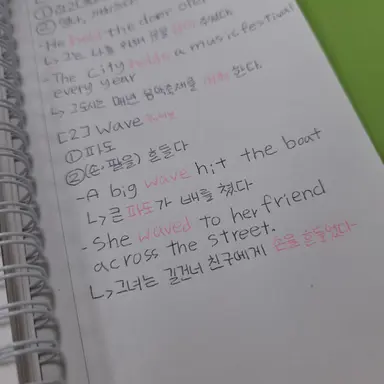 - He held the door open
↳ 그는 나를 위해 문을 잡아 주었다.
- The city holds a music festival
every year
↳ 그 도시는 매년 음악축제를 개최 한다.
[2] wave
① 파도
② (손·팔을) 흔들다
- A big wave hit the boat
↳ 큰 파도가 배를 쳤다
- She waved to her friend
across the street.
↳ 그녀는 길건너 친구에게 손을 흔들었다